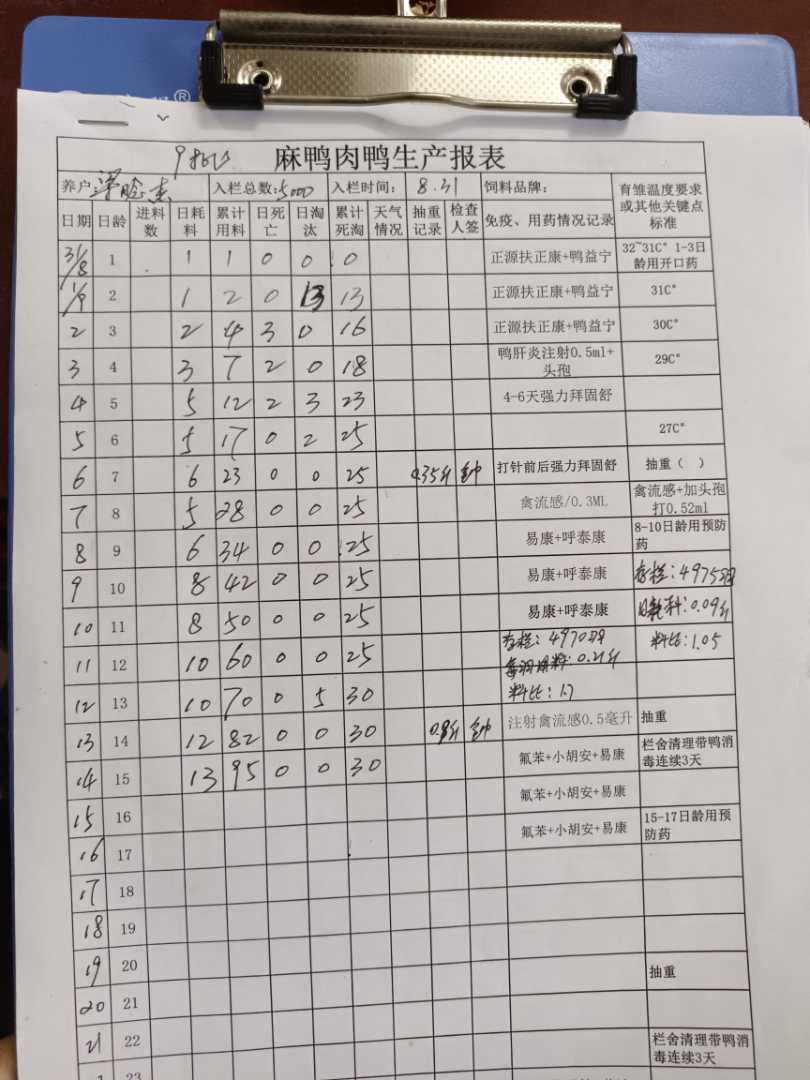 麻鸭肉鸭生产报表
养户: 入栏总数:5000 入栏时间: 8.31 饲料品牌: 育雏温度要求或其他关键点标准
日期 日龄 进料数 日耗料 累计用料 日死亡 日淘汰 累计死淘 天气情况 抽重记录 检查人签 免疫、用药情况记录
31/8 1 1 1 0 0 0 正源扶正康+鸭益宁 32~31C° 1-3日龄用开口药
1/9 2 1 2 0 13 13 正源扶正康+鸭益宁 31C°
2 3 2 4 3 0 16 正源扶正康+鸭益宁 30C°
3 4 3 7 2 0 18 鸭肝炎注射0.5ml+头孢 29C°
4 5 5 12 2 3 23 4-6天强力拜固舒
5 6 5 17 0 2 25 27C°
6 7 6 23 0 0 25 打针前后强力拜固舒 抽重（ ）
7 8 5 28 0 0 25 禽流感/0.3ML 禽流感+加头孢打0.52ml
8 9 6 34 0 0 25 易康+呼泰康 8-10日龄用预防药
9 10 8 42 0 0 25 易康+呼泰康 存栏:4975羽
10 11 8 50 0 0 25 易康+呼泰康 日耗料:0.09斤
11 12 10 60 0 0 25 存栏:4970羽 料比:1.05
每羽用料:0.21斤
12 13 10 70 0 5 30 料比:1.7
13 14 12 82 0 0 30 注射禽流感0.5毫升 抽重
14 15 13 95 0 0 30 氟苯+小胡安+易康 栏舍清理带鸭消毒连续3天
15 16 氟苯+小胡安+易康
16 17 氟苯+小胡安+易康 15-17日龄用预防药
17 18
18 19
19 20 抽重
20 21
21 22 栏舍清理带鸭消毒连续3天
23